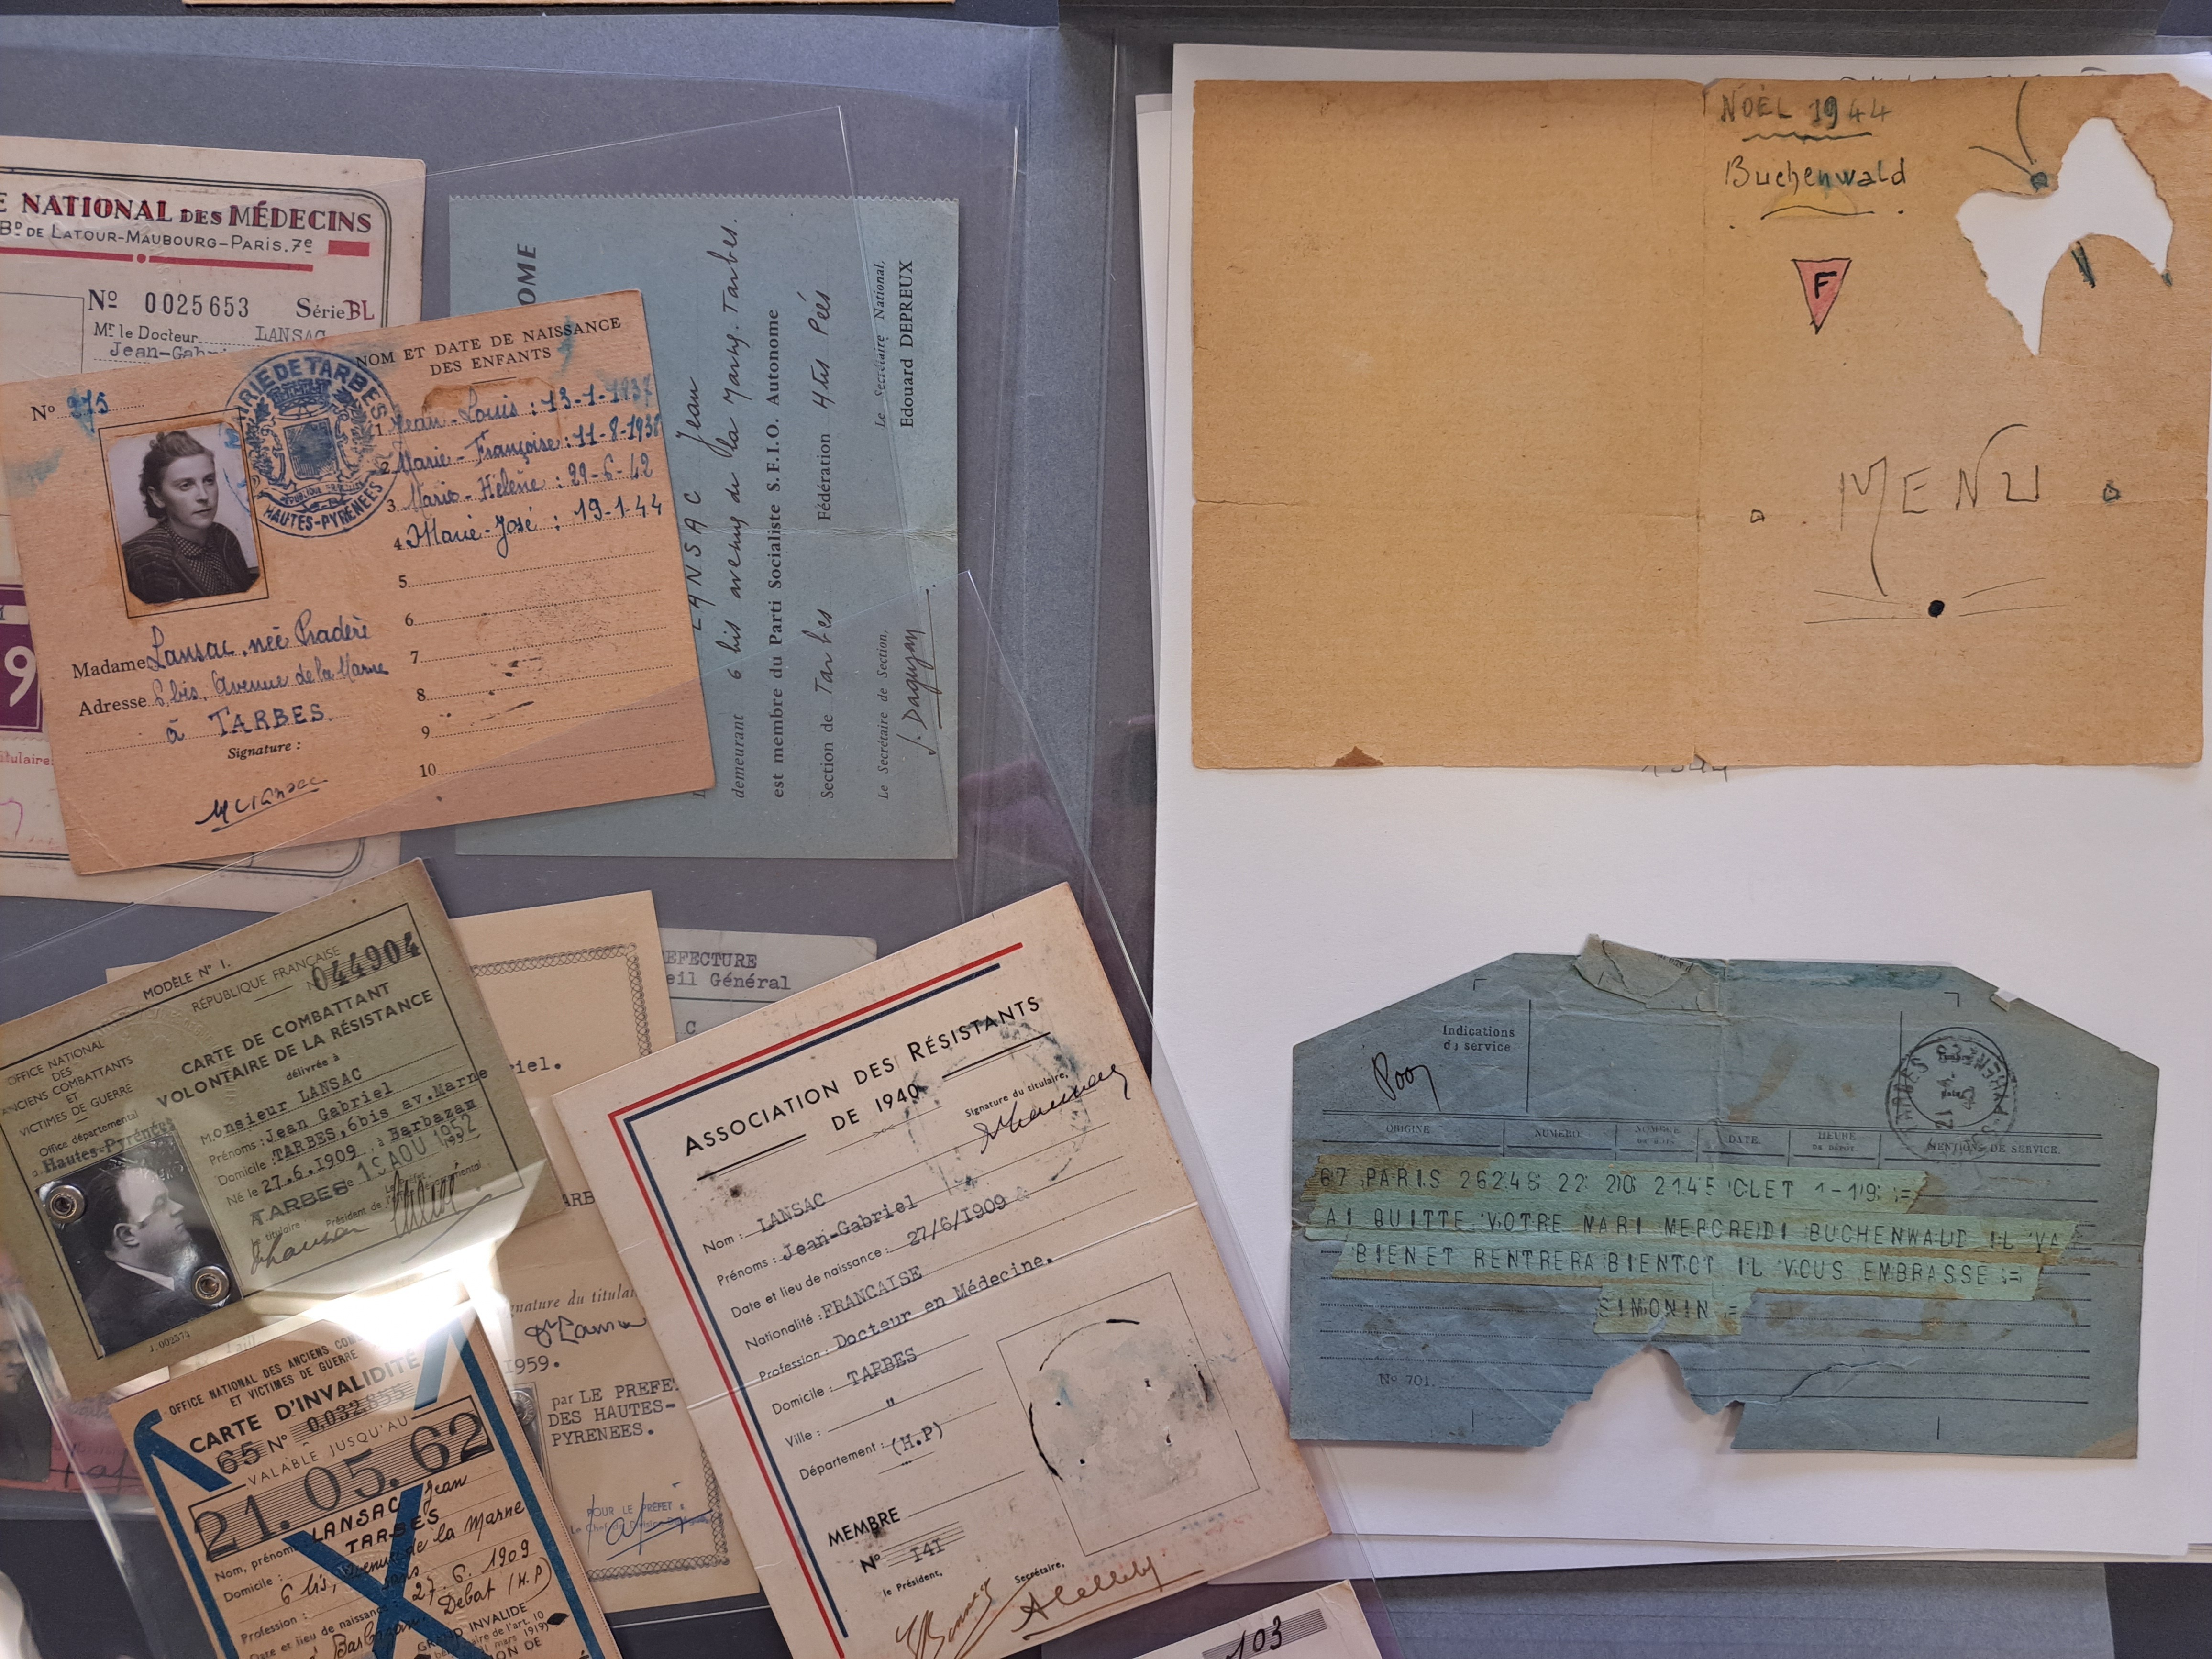 E NATIONAL DES MÉDECINS
Bᴰ DE LATOUR-MAUBOURG-PARIS.7ᵉ
Nº 0025653 Série BL
Mʳ le Docteur LANSAC
Jean-Gabr
9
itulaire
Nº 275
MAIRIE DE TARBES
HAUTES-PYRÉNÉES
NOM ET DATE DE NAISSANCE
DES ENFANTS
1 Jean-Louis : 13-1-1937
2 Marie-Françoise : 11-8-1938
3 Marie-Hélène : 29-6-42
4 Marie-José : 19-1-44
5
6
7
8
9
10
Madame Lansac, née Pradère
Adresse 6 bis, Avenue de la Marne
à TARBES.
Signature :
MC Lansac
OME
LANSAC Jean
demeurant 6 bis avenue de la Marne. Tarbes.
est membre du Parti Socialiste S.F.I.O. Autonome
Section de Tarbes Fédération Htes Pées
Le Secrétaire de Section, Le Secrétaire National,
J. Daguzan Edouard DEPREUX
MODÈLE Nº 1.
RÉPUBLIQUE FRANÇAISE
Nº 044904
OFFICE NATIONAL
DES
ANCIENS COMBATTANTS
ET
VICTIMES DE GUERRE
Office départemental
à Hautes-Pyrénées
CARTE DE COMBATTANT
VOLONTAIRE DE LA RÉSISTANCE
délivrée à
Monsieur LANSAC
Prénoms : Jean Gabriel
Domicile : TARBES, 6bis av. Marne
Né le 27.6.1909 à Barbazan
TARBES le 19 AOU 1952
Le titulaire
Président de
EFECTURE
eil Général
C
riel.
ARB
gnature du titula
Dr Lansac
1959.
par LE PREFE
DES HAUTES-
PYRENEES.
POUR LE PRÉFET
OFFICE NATIONAL DES ANCIENS CO
ET VICTIMES DE GUERRE
CARTE D'INVALIDITÉ
65 Nº 0.032.855
VALABLE JUSQU'AU
21.05.62
Nom, prénom LANSAC Jean
Domicile : TARBES
6 bis, Avenue de la Marne
Profession : sans
Date et lieu de naissance 27.6.1909
à Barbazan Debat (H.P)
GRAND INVALIDE
aire de l'art. 10
mars 1919)
ION DE
ASSOCIATION DES RÉSISTANTS
DE 1940
Signature du titulaire,
Nom : LANSAC
Prénoms : Jean-Gabriel
Date et lieu de naissance : 27/6/1909
Nationalité : FRANCAISE
Profession : Docteur en Médecine.
Domicile : TARBES
Ville : "
Département : (H.P)
MEMBRE
Nº 141
le Président, Secrétaire,
103
NOËL 1944
Buchenwald
F
MENU
Indications
du service
ORIGINE NUMÉRO NOMBRE DE MOTS DATE HEURE DE DÉPOT MENTIONS DE SERVICE.
TARBES
67 PARIS 26248 22 20 2145 CLET 1-19 :=
AI QUITTE VOTRE MARI MERCREIDI BUCHENWALD IL VA
BIENET RENTRERA BIENTOT IL VOUS EMBRASSE :=
SIMONIN =
Nº 701.